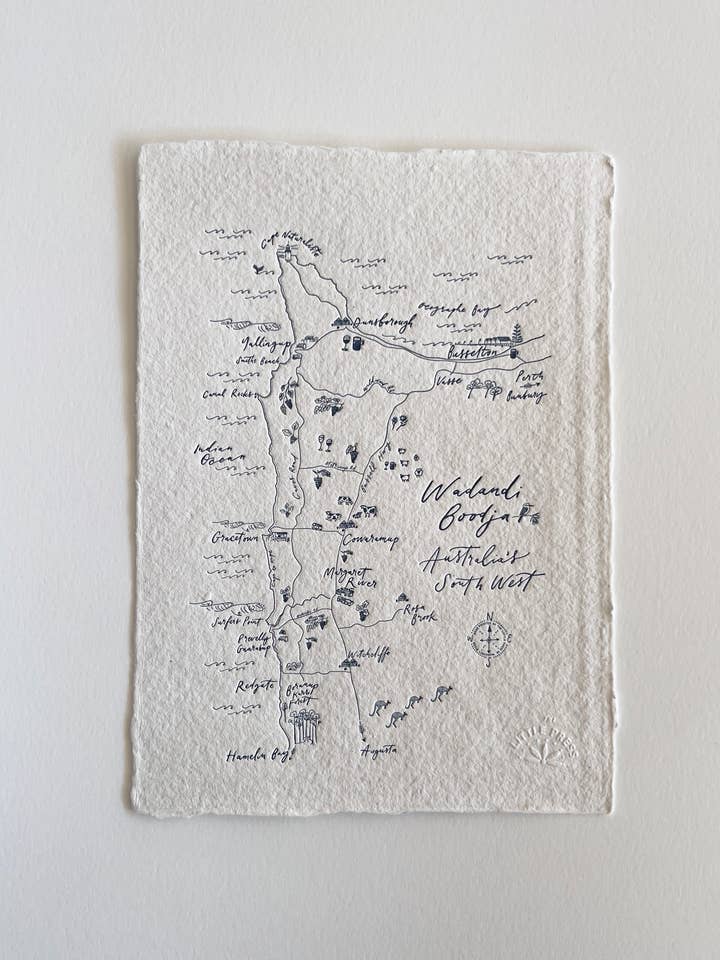 Cape Naturaliste
Geographe Bay
Dunsborough
Yallingup
Smiths Beach
Busselton
Vasse
Perth
Bunbury
Canal Rocks
Indian
Ocean
Caves Road
Bussell Hwy
Wadandi
Boodja
Australia's
South West
Gracetown
Cowaramup
Margaret
River
Rosa
Brook
Surfers Point
Prevelly
Gnarabup
Witchcliffe
N
Redgate
Boranup
Karri
Forest
Hamelin Bay
Augusta
LITTLE PRESS